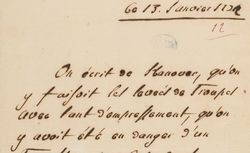 Ce 13. Janvier
12
On écrit de Hanover, qu'on
y faisoit les levées de Troupes
avec tant d'empressement, qu'on
y avoit été en danger d'un